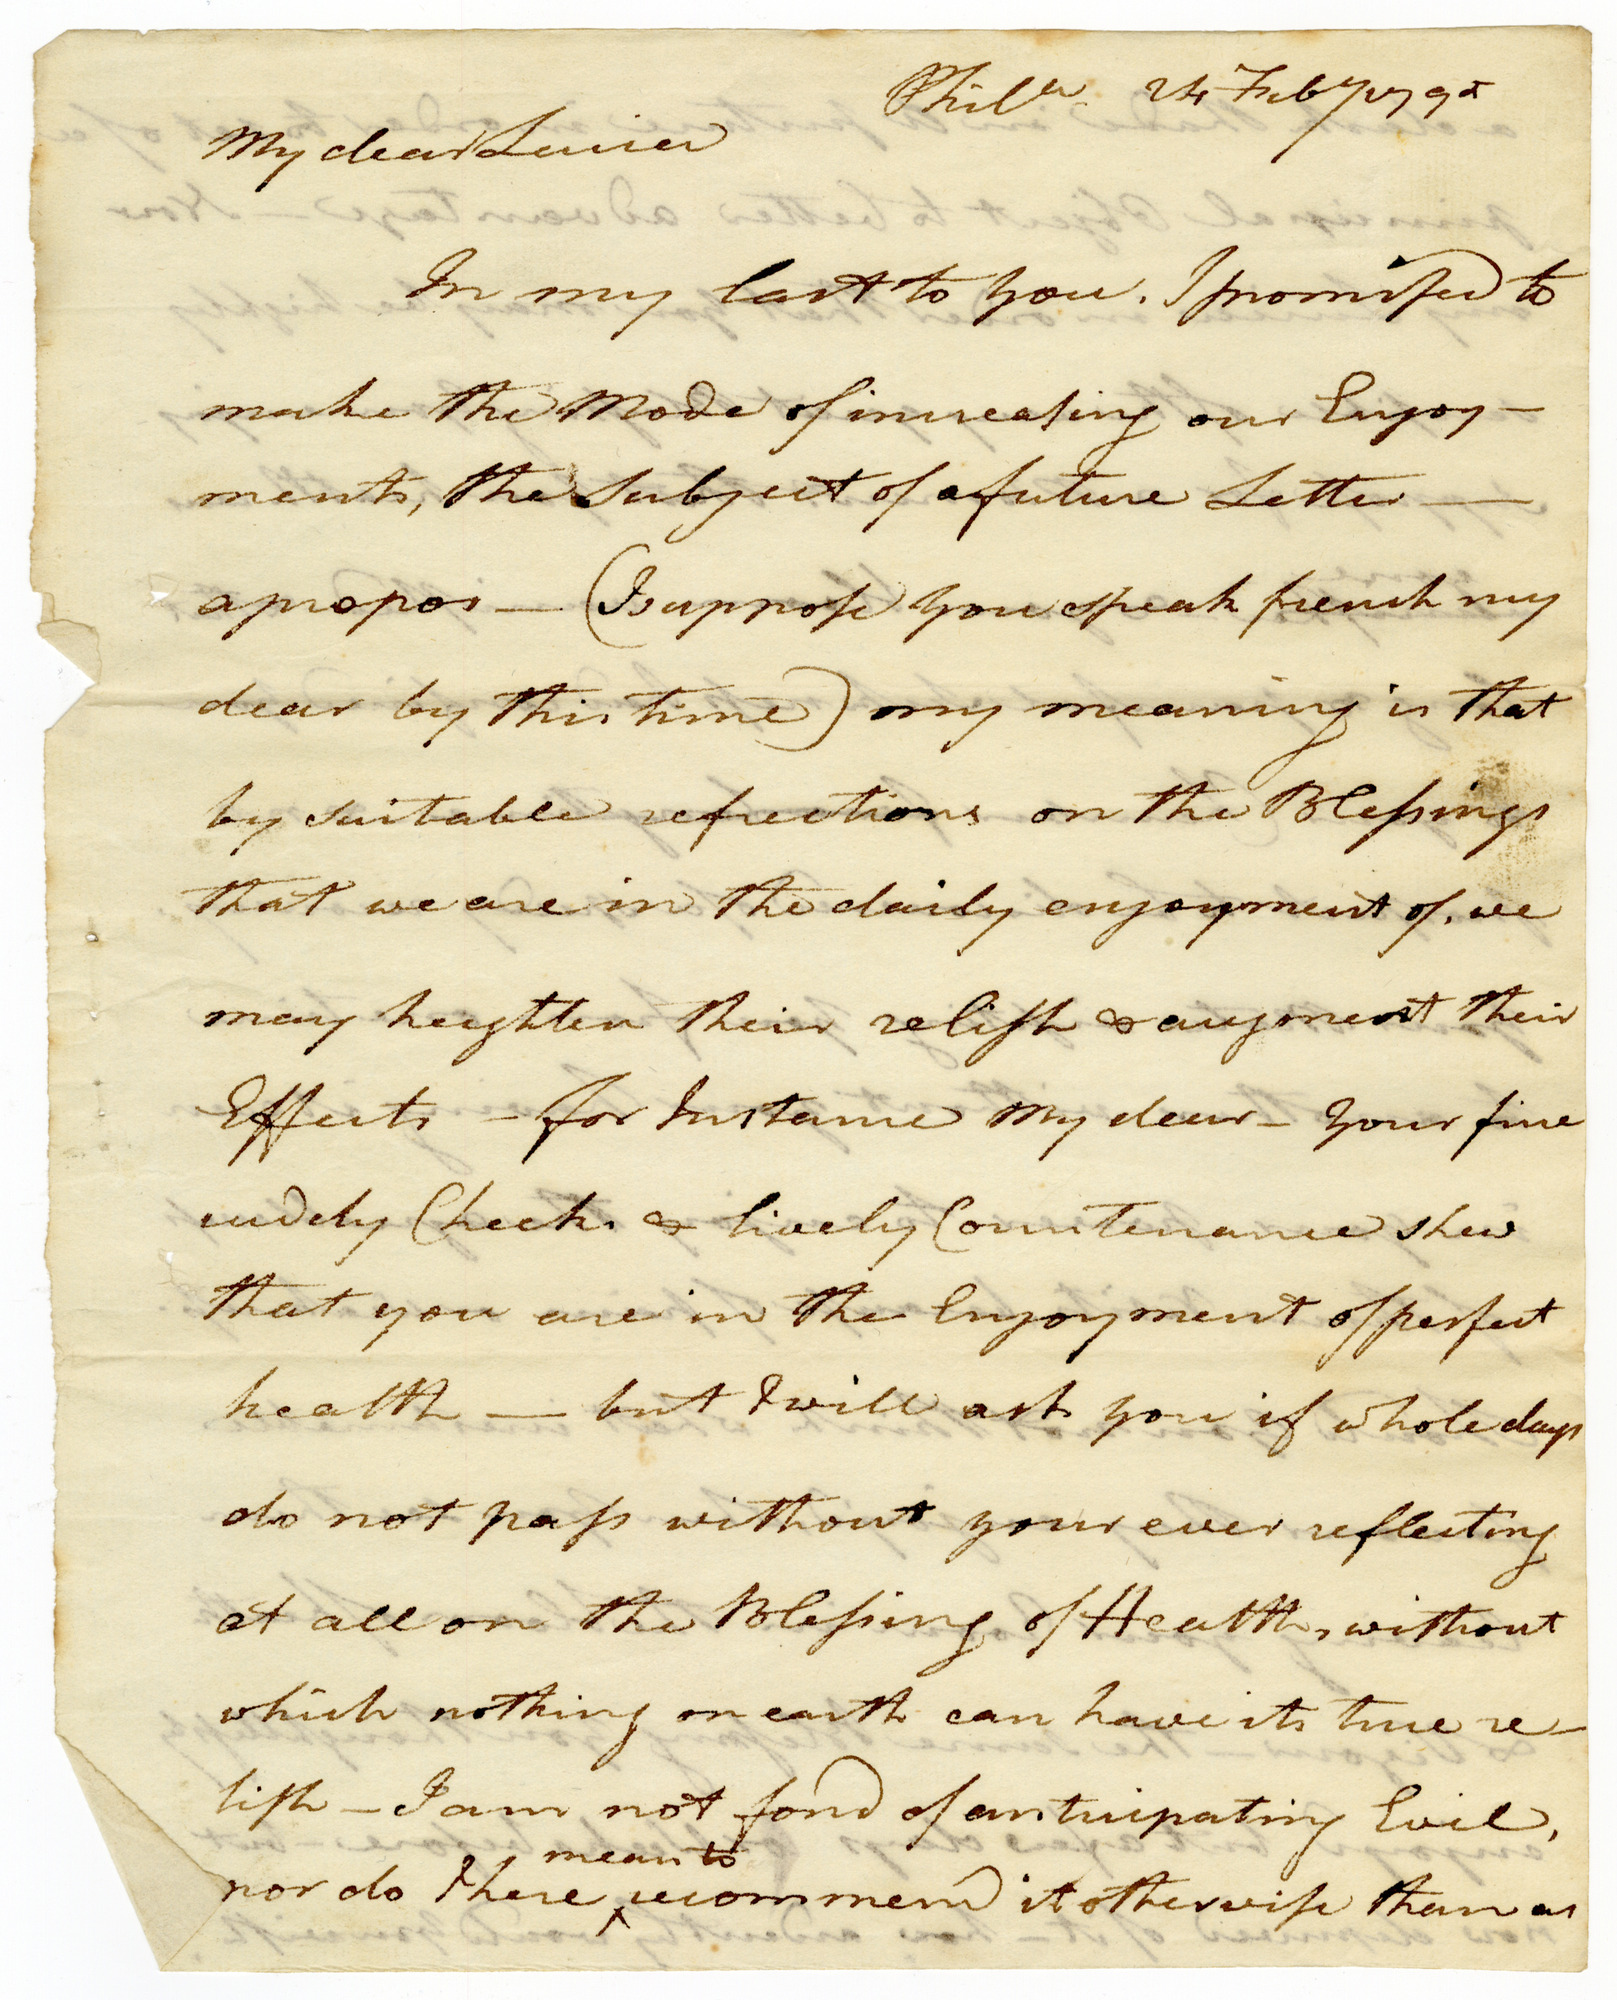 Phila. 24 Feby 179
My dear Louisa
In my last to you. I promised to
make the Mode of increasing our Enjoy-
ments, the Subject of a future Letter —
apropos — (I suppose you speak french my
dear by this time) my meaning is that
by suitable reflections on the Blessings
that we are in the daily enjoyment of. we
may heighten their relish & augment their
Effects — for Instance My dear — your fine
rudely Cheeks & lively Countenance shew
that you are in the Enjoyment of perfect
health — but I will ask you if whole days
do not pass without your ever reflecting
at all on the Blessing of Health, without
which nothing on earth can have its true re-
lish — I am not fond of anticipating Evil,
nor do I here mean to recommend it otherwise than as